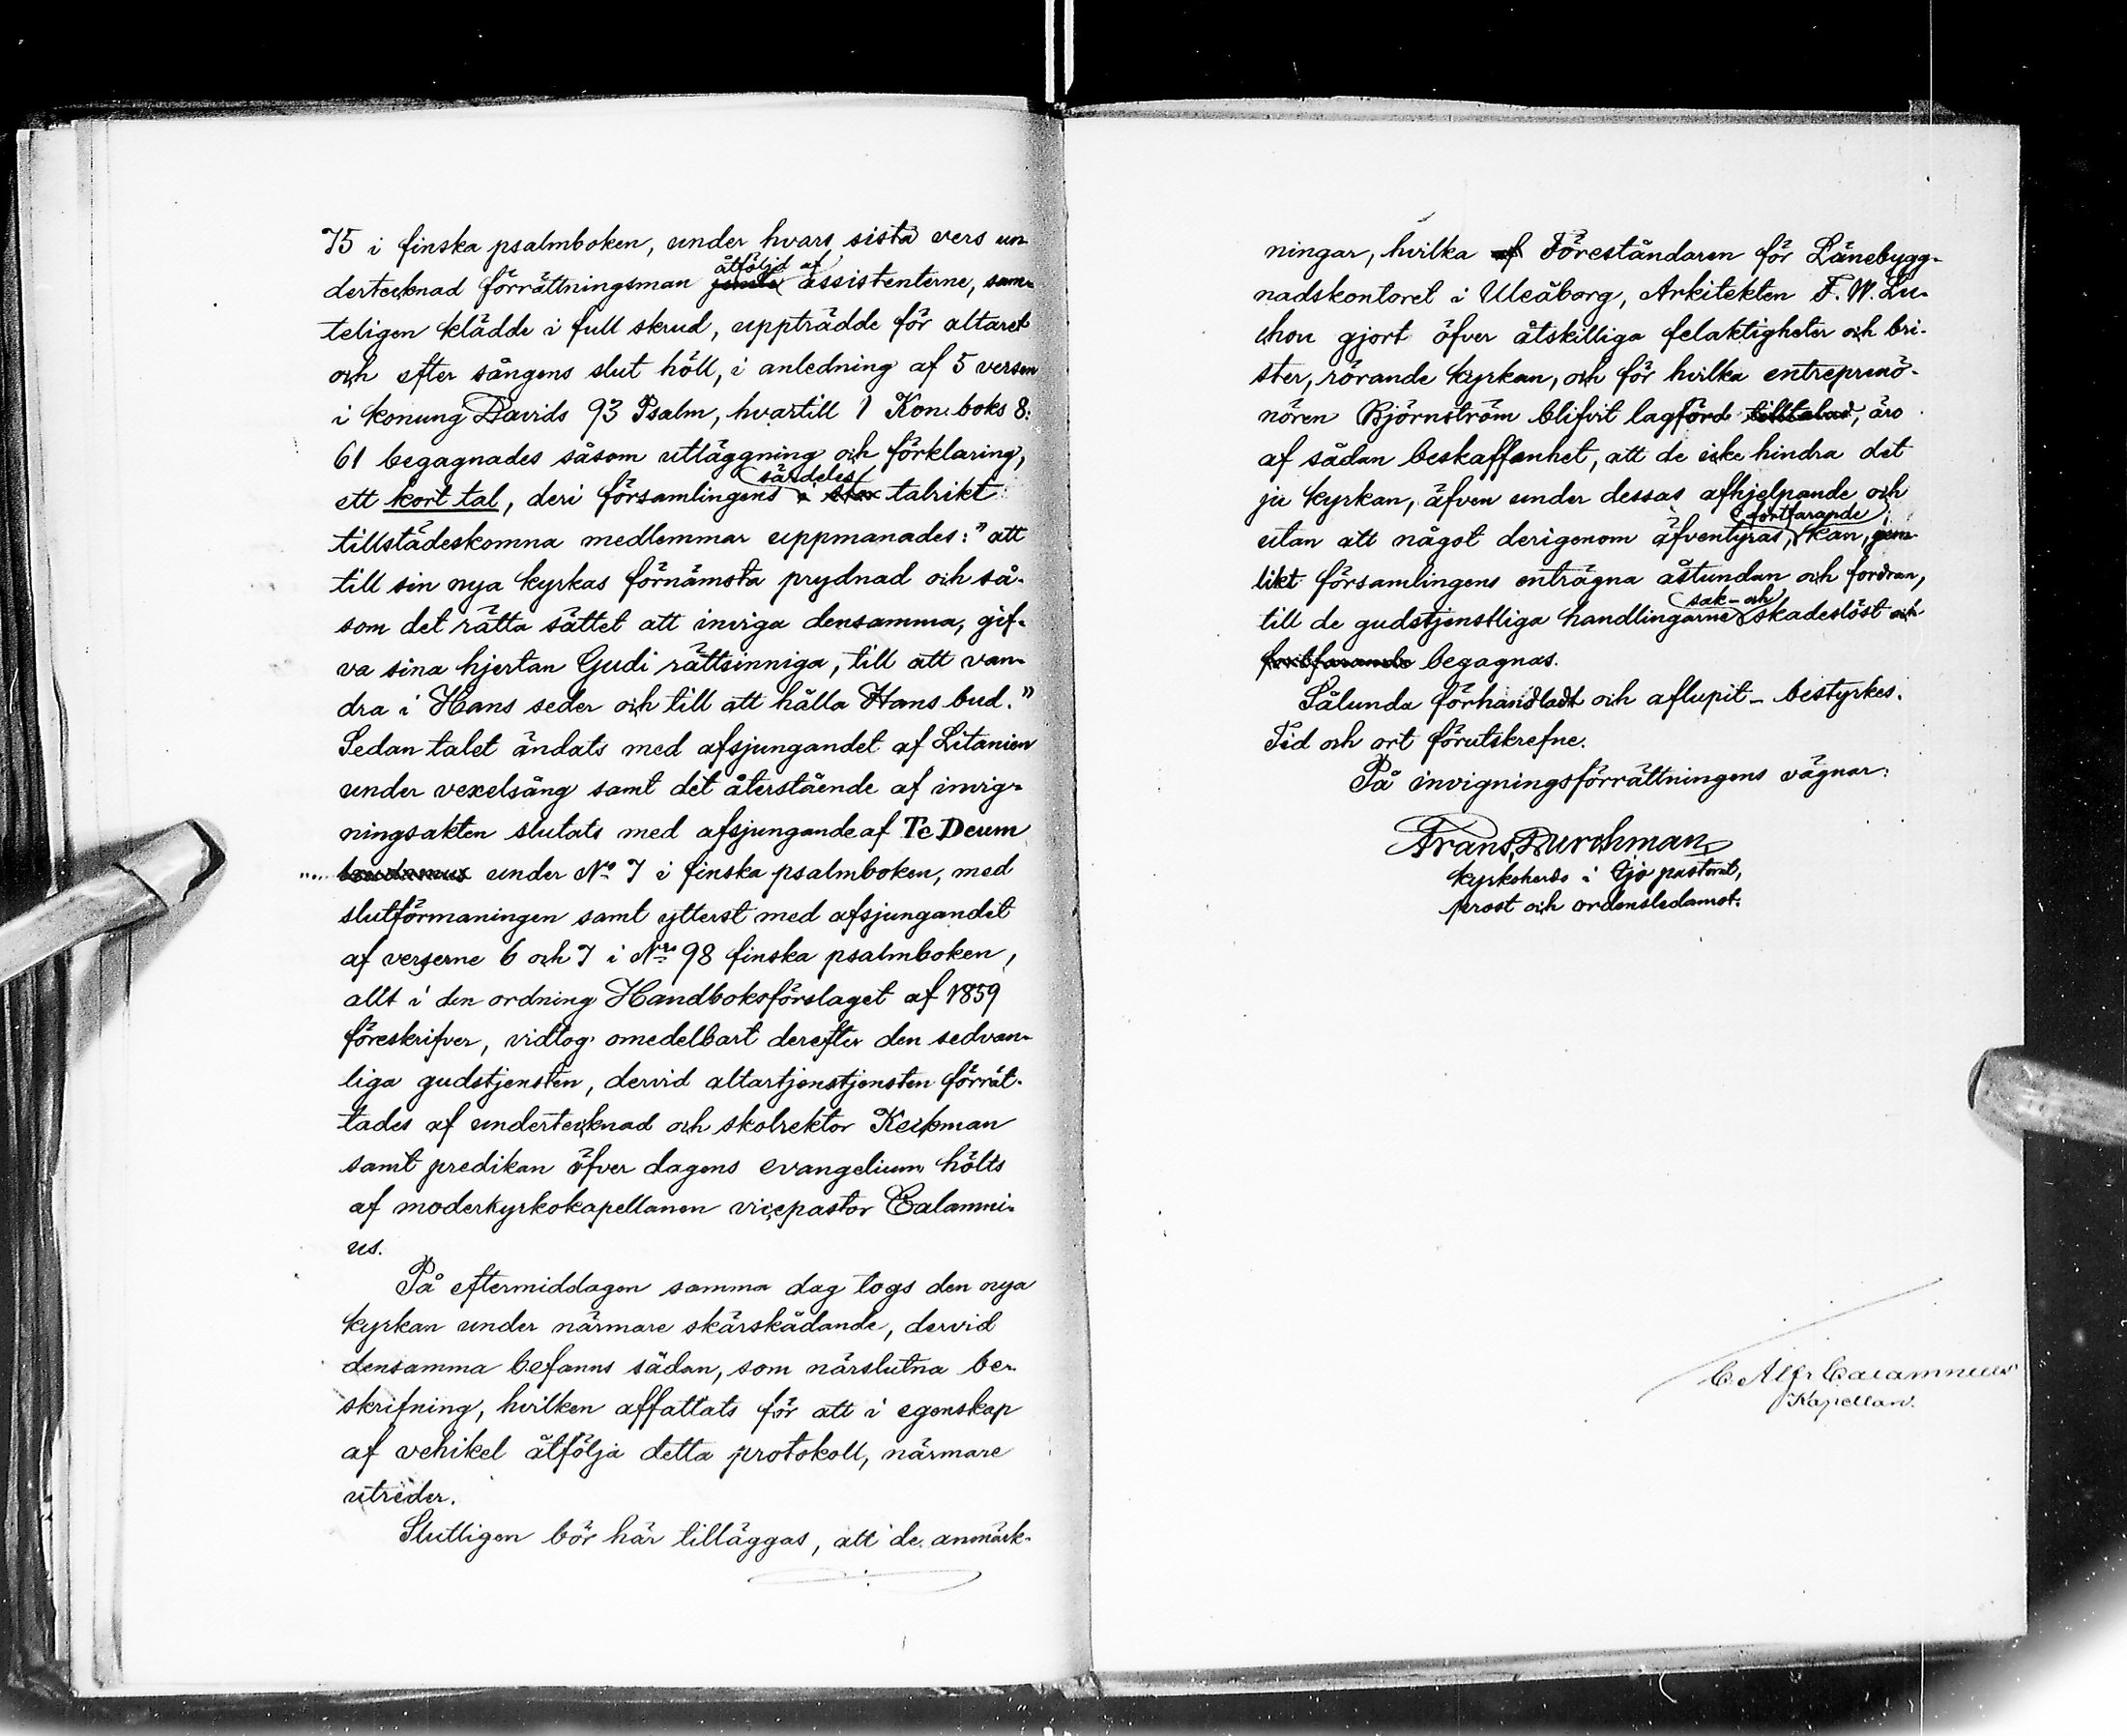 75 i finska psalmboken, under hvars sista vers un-
dertecknad förrättningsman jemte åtföljd af assistenterne, sam-
teligen klädde i full skrud, uppträdde för altaret
och efter sångens slut höll, i anledning af 5 versen
i konung Davids 93 Psalm, hvartill 1 Kon. boks 8:
61 begagnades såsom utläggning och förklaring,
ett kort tal, deri församlingens särdeles talrikt
tillstädeskomna medlemmar uppmanades: "att
till sin nya kyrkas förnämsta prydnad och så-
som det rätta sättet att inviga densamma, gif-
va sina hjertan Gudi rättsinniga, till att van-
dra i Hans seder och till att hålla Hans bud."
Sedan talet ändats med afsjungandet af Litanien
under vexelsång samt det återstående af invig-
ningsakten slutats med afsjungande af Te Deum
laudamus under No 7 i finska psalmboken, med
slutförmaningen samt ytterst med afsjungandet
af verserne 6 och 7 i No 98 finska psalmboken,
allt i den ordning Handboksförslaget af 1859
föreskrifver, vidtog omedelbart derefter den sedvan-
liga gudstjensten, dervid altartjenstjensten förrät-
tades af undertecknad och skolrektor Keckman
samt predikan öfver dagens evangelium hölts
af moderkyrkokapellanen vicepastor Calamni-
us.
På eftermiddagen samma dag togs den nya
kyrkan under närmare skärskådande, dervid
densamma befanns sådan, som närslutna be-
skrifning, hvilken affattats för att i egenskap
af vehikel åtfölja detta protokoll, närmare
utreder.
Slutligen bör här tilläggas, att de anmärk-
ningar, hvilka af Föreståndaren för Länebygg-
nadskontoret i Uleåborg, Arkitekten F. W. Lü-
chou gjort öfver åtskilliga felaktigheter och bri-
ster, rörande kyrkan, och för hvilka entreprenö-
nören Björnström blifvit lagförd tilltalad, äro
af sådan beskaffenhet, att de icke hindra det
ju kyrkan, äfven under dessas afhjelpande och
utan att något derigenom äfventyras, fortfarande kan, jem-
likt församlingens enträgna åstundan och fordran,
till de gudstjenstliga handlingarne sak- och skadeslöst och
fortfarande begagnas.
Sålunda förhandladt och aflupit - bestyrkes.
Tid och ort förutskrefne.
På invigningsförrättningens vägnar:
Frans Durchman,
kyrkoherde i Ijo pastorat,
prost och ordensledamot.
C. Alfr Calamnius
Kapellan.